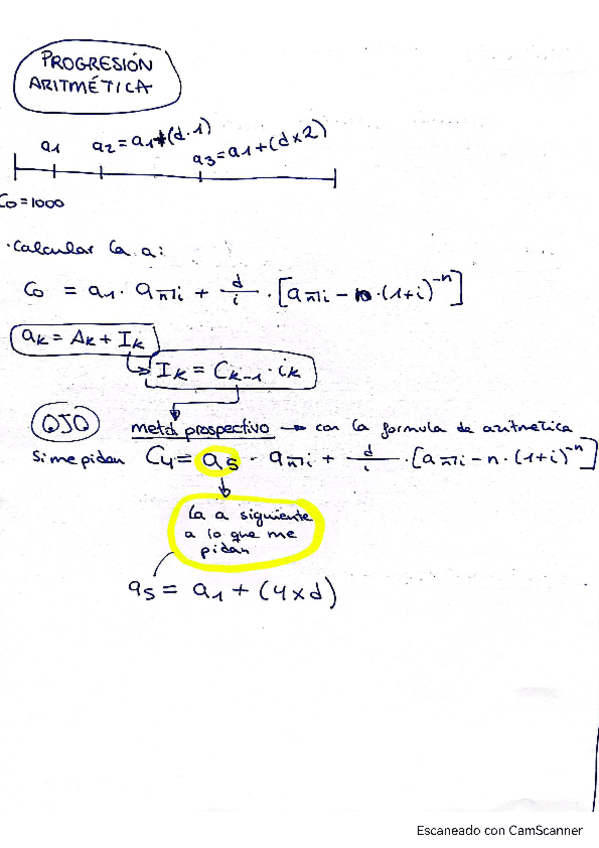 PROGRESIÓN
ARITMÉTICA
a1 a2=a1+(d·1) a3=a1+(dx2)
Co=1000
·Calcular la a:
Co = a1· an̅|i + d/i · [an̅|i - n·(1+i)^-n]
ak = Ak + Ik
Ik = Ck-1 · ik
OJO metd prospectivo → con la formula de aritmetica
Si me pidan C4 = a5 · an̅|i + d/i · [an̅|i - n·(1+i)^-n]
la a siguiente
a lo que me
pidan
a5 = a1 + (4xd)
Escaneado con CamScanner